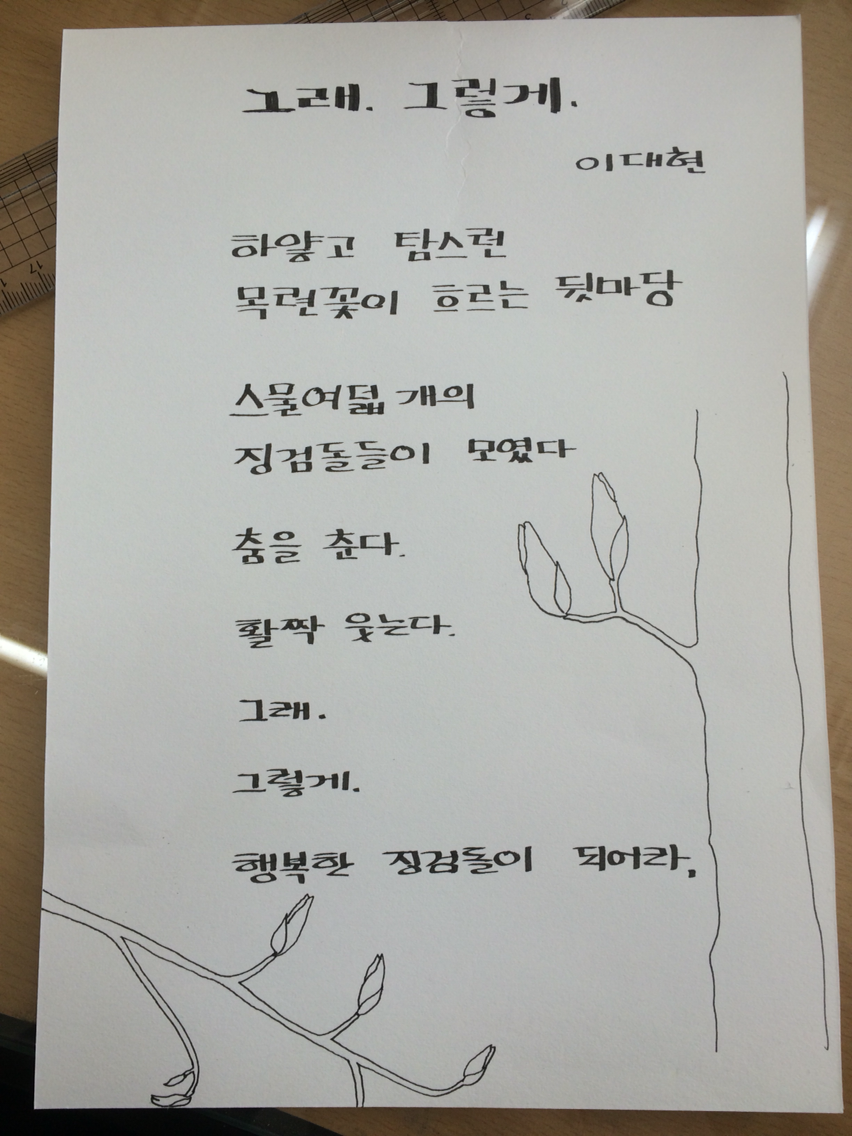 그래. 그렇게.
이대현
하얗고 탐스런
목련꽃이 흐르는 뒷마당
스물여덟 개의
징검돌들이 모였다
춤을 춘다.
활짝 웃는다.
그래.
그렇게.
행복한 징검돌이 되어라,
17